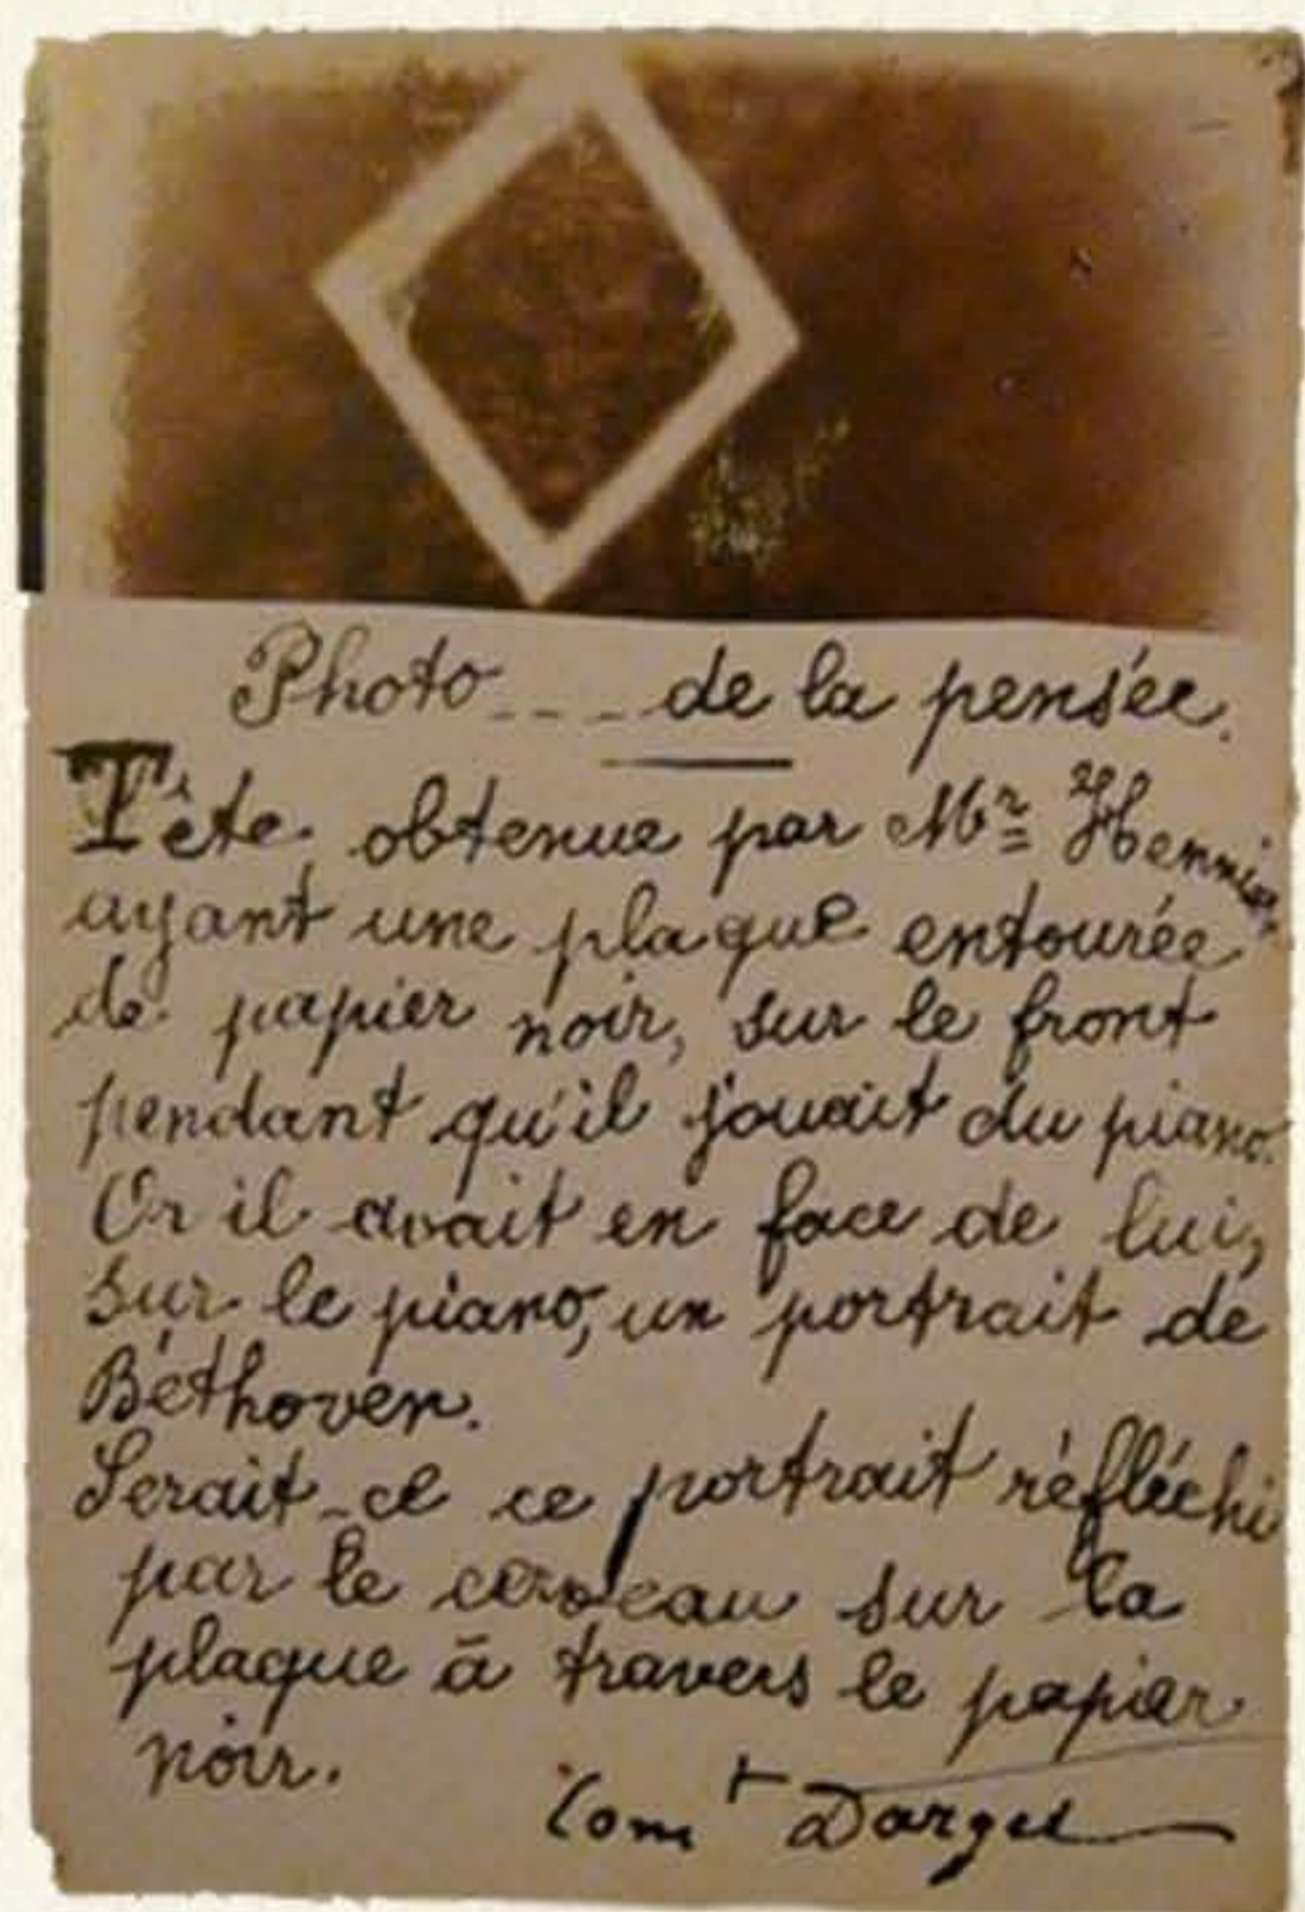 Photo ---- de la pensée.
Tête obtenue par Mr
ayant une plaque entourée
de papier noir, sur le front
pendant qu'il jouait du piano.
Or il avait en face de lui,
sur le piano, un portrait de
Béthoven.
Serait-ce ce portrait réfléchi
par le cerveau sur la
plaque à travers le papier
noir.
Comt Darget